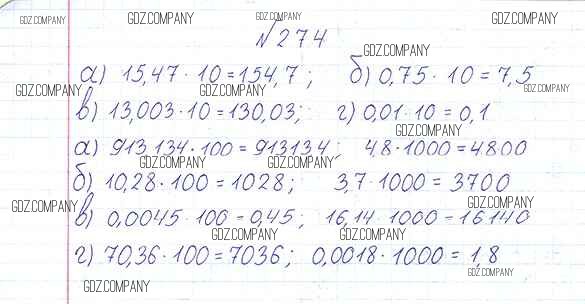 GDZ.COMPANY GDZ.COMPANY GDZ.COMPANY GDZ.COMPANY
№274
GDZ.COMPANY
а) 15,47 · 10 = 154,7 ; б) 0,75 · 10 = 7,5
GDZ.COMPANY GDZ.COMPANY GDZ.COMPANY
в) 13,003 · 10 = 130,03; г) 0,01 · 10 = 0,1
GDZ.COMPANY
а) 913,134 · 100 = 91313,4 ; 4,8 · 1000 = 4800
GDZ.COMPANY GDZ.COMPANY
б) 10,28 · 100 = 1028 ; 3,7 · 1000 = 3700
GDZ.COMPANY GDZ.COMPANY
в) 0,0045 · 100 = 0,45 ; 16,14 · 1000 = 16140
GDZ.COMPANY GDZ.COMPANY
г) 70,36 · 100 = 7036 ; 0,0018 · 1000 = 1,8
GDZ.COMPANY
GDZ.COMPANY